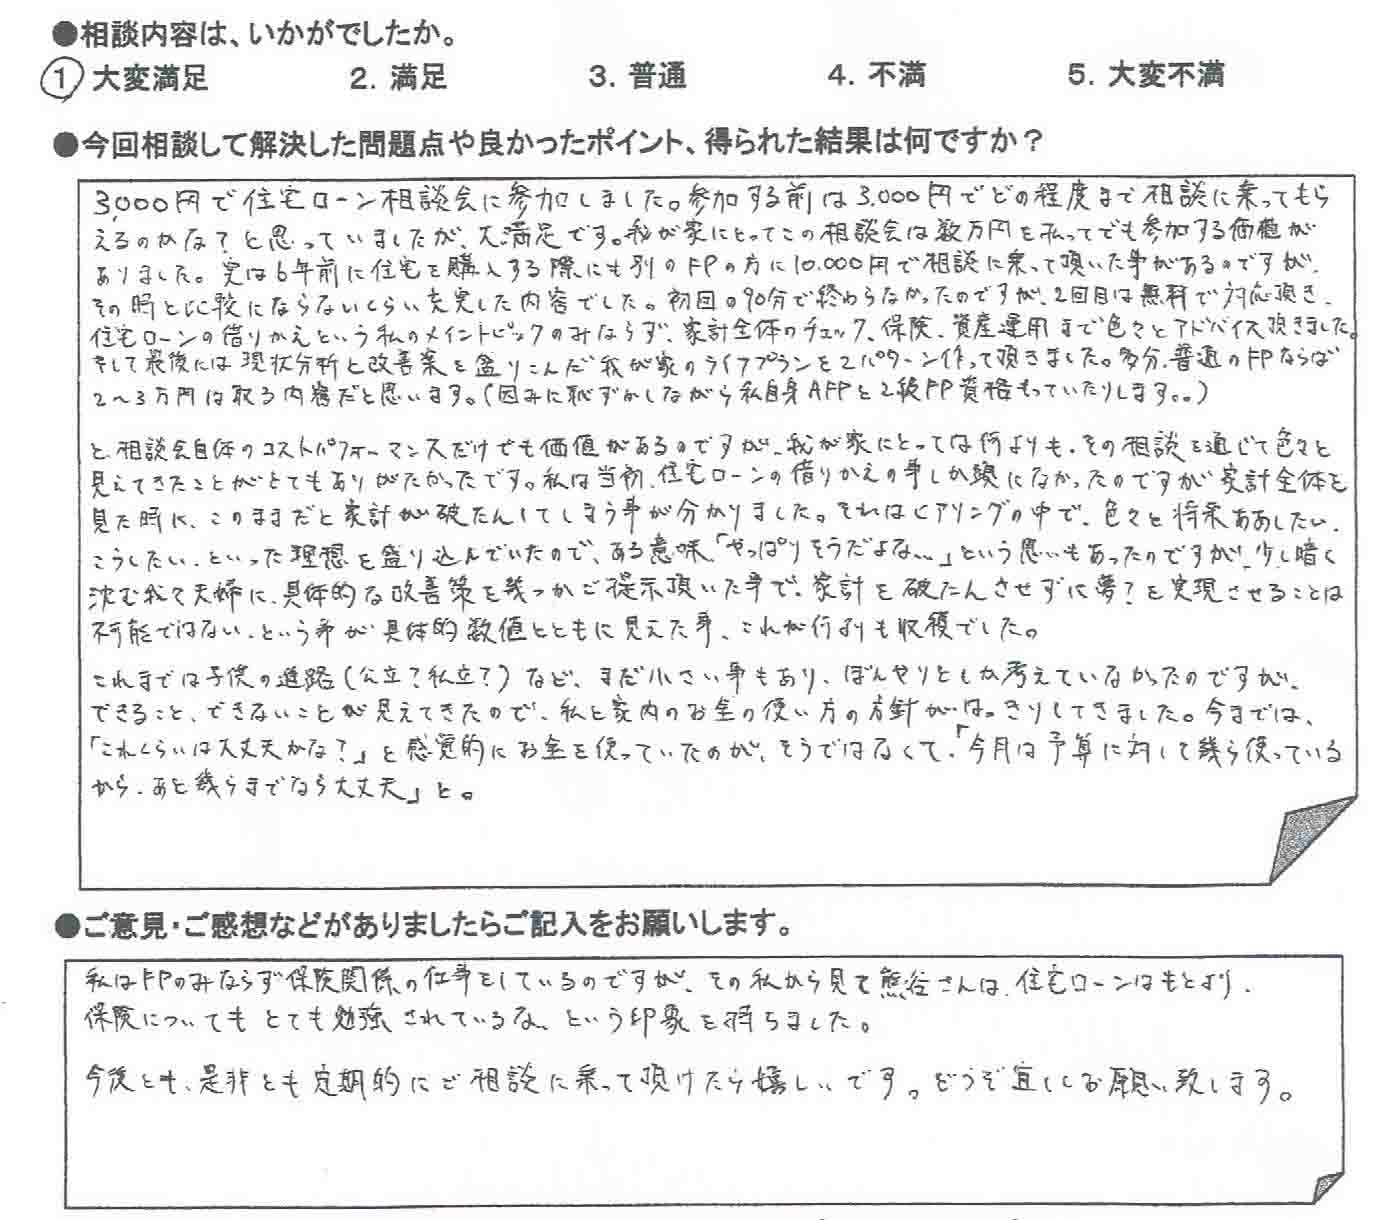 ●相談内容は、いかがでしたか。
1 大変満足 2. 満足 3. 普通 4. 不満 5. 大変不満
●今回相談して解決した問題点や良かったポイント、得られた結果は何ですか？
3,000円で住宅ローン相談会に参加しました。参加する前は3,000円でどの程度まで相談に乗ってもら
えるのかな？と思っていましたが、大満足です。我が家にとってこの相談会は数万円を払ってでも参加する価値が
ありました。実は6年前に住宅を購入する際にも別のFPの方に10,000円で相談に乗って頂いた事があるのですが、
その時と比較にならないくらい充実した内容でした。初回の90分で終わらなかったのですが、2回目は無料で対応頂き、
住宅ローンの借りかえという私のメイントピックのみならず、家計全体のチェック、保険、資産運用まで色々とアドバイス頂きました。
そして最後には現状分析と改善案を盛りこんだ我が家のライフプランを2パターン作って頂きました。多分、普通のFPならば
2〜3万円は取る内容だと思います。(因みに恥ずかしながら私自身AFPと2級FP資格もっていたりします。。)
と、相談会自体のコストパフォーマンスだけでも価値があるのですが、我が家にとっては何よりも、その相談を通じて色々と
見えてきたことがとてもありがたかったです。私は当初、住宅ローンの借りかえの事しか頭になかったのですが家計全体を
見た時に、このままだと家計が破たんしてしまう事が分かりました。それはヒアリングの中で、色々と将来ああしたい、
こうしたい、といった理想を盛り込んでいたので、ある意味「やっぱりそうだよな…」という思いもあったのですが、少し暗く
沈む我々夫婦に、具体的な改善策を幾つかご提示頂いた事で、家計を破たんさせずに夢？を実現させることは
不可能ではない、という事が具体的数値とともに見えた事、これが何よりも収穫でした。
これまでは子供の進路(公立？私立？)など、まだ小さい事もあり、ぼんやりとしか考えていなかったのですが、
できること、できないことが見えてきたので、私と家内のお金の使い方の方針がはっきりしてきました。今までは、
「これくらいは大丈夫かな？」と感覚的にお金を使っていたのが、そうではなくて、「今月は予算に対して幾ら使っている
から、あと幾らまでなら大丈夫」と。
●ご意見・ご感想などがありましたらご記入をお願いします。
私はFPのみならず保険関係の仕事をしているのですが、その私から見て熊谷さんは、住宅ローンはもとより、
保険についてもとても勉強されているな、という印象を持ちました。
今後とも、是非とも定期的にご相談に乗って頂けたら嬉しいです。どうぞ宜しくお願い致します。